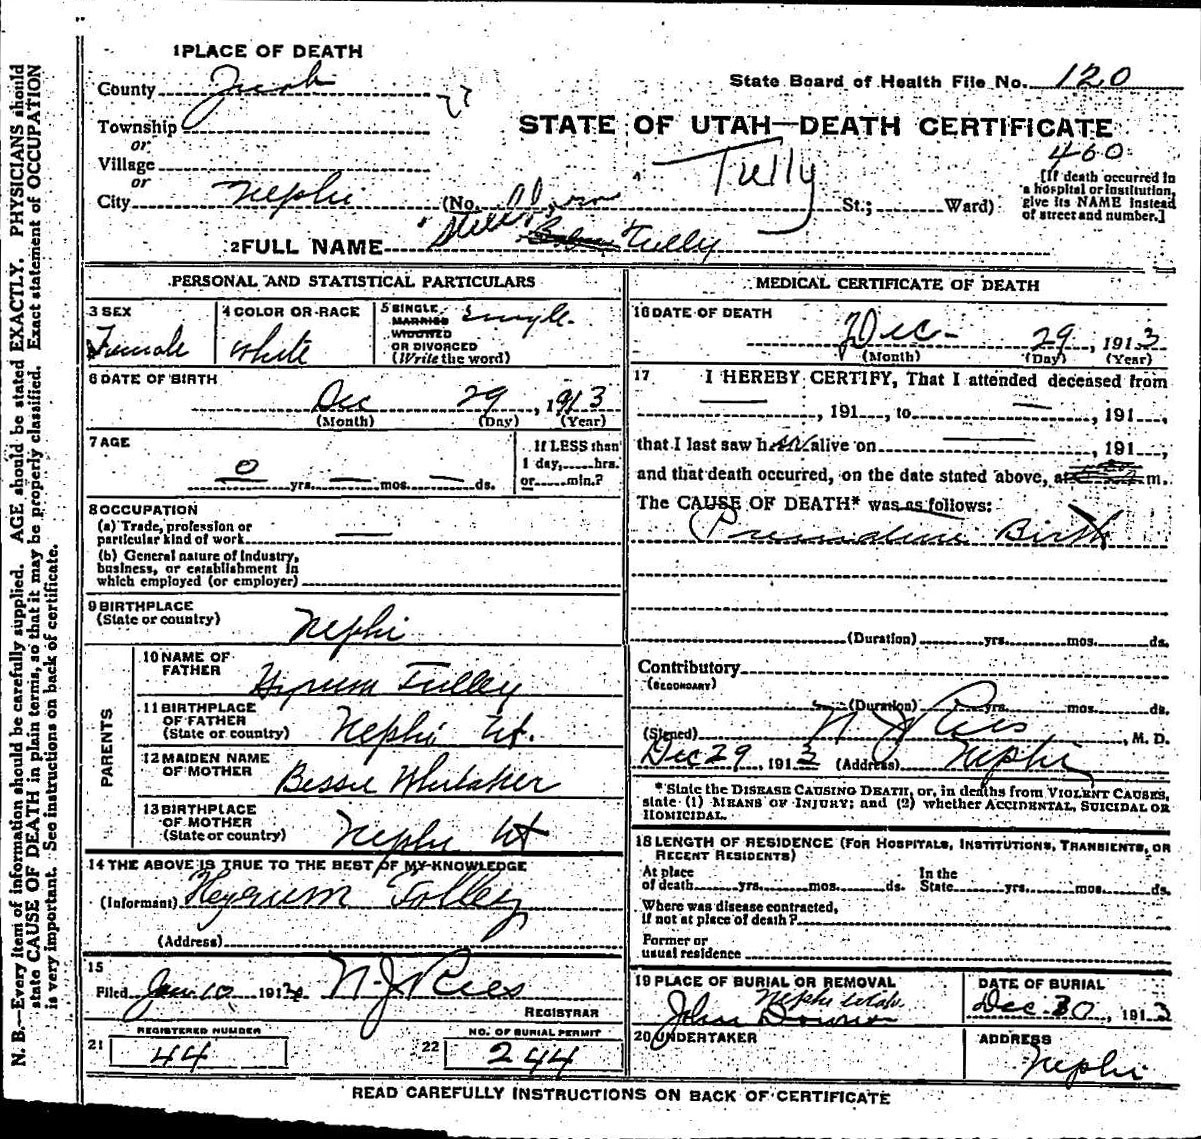 N. B.—Every item of information should be carefully supplied. AGE should be stated EXACTLY. PHYSICIANS should
state CAUSE OF DEATH in plain terms, so that it may be properly classified. Exact statement of OCCUPATION
is very important. See instructions on back of certificate.
1 PLACE OF DEATH
County Juab
State Board of Health File No. 120
Township
or
STATE OF UTAH—DEATH CERTIFICATE
Village
or
460
Tully
[If death occurred in
a hospital or institution,
give its NAME instead
of street and number.]
City Nephi (No. St.; Ward)
2 FULL NAME Still Born Tulley
PERSONAL AND STATISTICAL PARTICULARS
3 SEX
Female
4 COLOR OR RACE
White
5 SINGLE
MARRIED
WIDOWED
OR DIVORCED
(Write the word)
Single
6 DATE OF BIRTH
Dec 29, 1913
(Month) (Day) (Year)
7 AGE
0 yrs. — mos. — ds.
If LESS than
1 day, hrs.
or min.?
8 OCCUPATION
(a) Trade, profession or
particular kind of work —
(b) General nature of Industry,
business, or establishment in
which employed (or employer)
9 BIRTHPLACE
(State or country)
Nephi
PARENTS
10 NAME OF
FATHER
Hyrum Tulley
11 BIRTHPLACE
OF FATHER
(State or country)
Nephi Ut.
12 MAIDEN NAME
OF MOTHER
Bessie Whitaker
13 BIRTHPLACE
OF MOTHER
(State or country)
Nephi Ut
14 THE ABOVE IS TRUE TO THE BEST OF MY KNOWLEDGE
(Informant) Heyrum Tolley
(Address)
15
Filed Jan 10 1914 N. J. Rees
REGISTRAR
REGISTERED NUMBER
21 44
NO. OF BURIAL PERMIT
22 244
MEDICAL CERTIFICATE OF DEATH
16 DATE OF DEATH
Dec 29, 1913
(Month) (Day) (Year)
17 I HEREBY CERTIFY, That I attended deceased from
—, 191, to —, 191,
that I last saw her alive on —, 191,
and that death occurred, on the date stated above, at m.
The CAUSE OF DEATH* was as follows:
Premature Birth
(Duration) yrs. mos. ds.
Contributory
(SECONDARY)
(Duration) yrs. mos. ds.
(Signed) N J Rees, M. D.
Dec 29, 1913 (Address) Nephi
* State the DISEASE CAUSING DEATH, or, in deaths from VIOLENT CAUSES,
state (1) MEANS OF INJURY; and (2) whether ACCIDENTAL, SUICIDAL OR
HOMICIDAL.
18 LENGTH OF RESIDENCE (FOR HOSPITALS, INSTITUTIONS, TRANSIENTS, OR
RECENT RESIDENTS)
At place
of death yrs. mos. ds.
In the
State yrs. mos. ds.
Where was disease contracted,
if not at place of death?
Former or
usual residence
19 PLACE OF BURIAL OR REMOVAL
Nephi Utah
DATE OF BURIAL
Dec 30, 1913
John
20 UNDERTAKER
ADDRESS
Nephi
READ CAREFULLY INSTRUCTIONS ON BACK OF CERTIFICATE